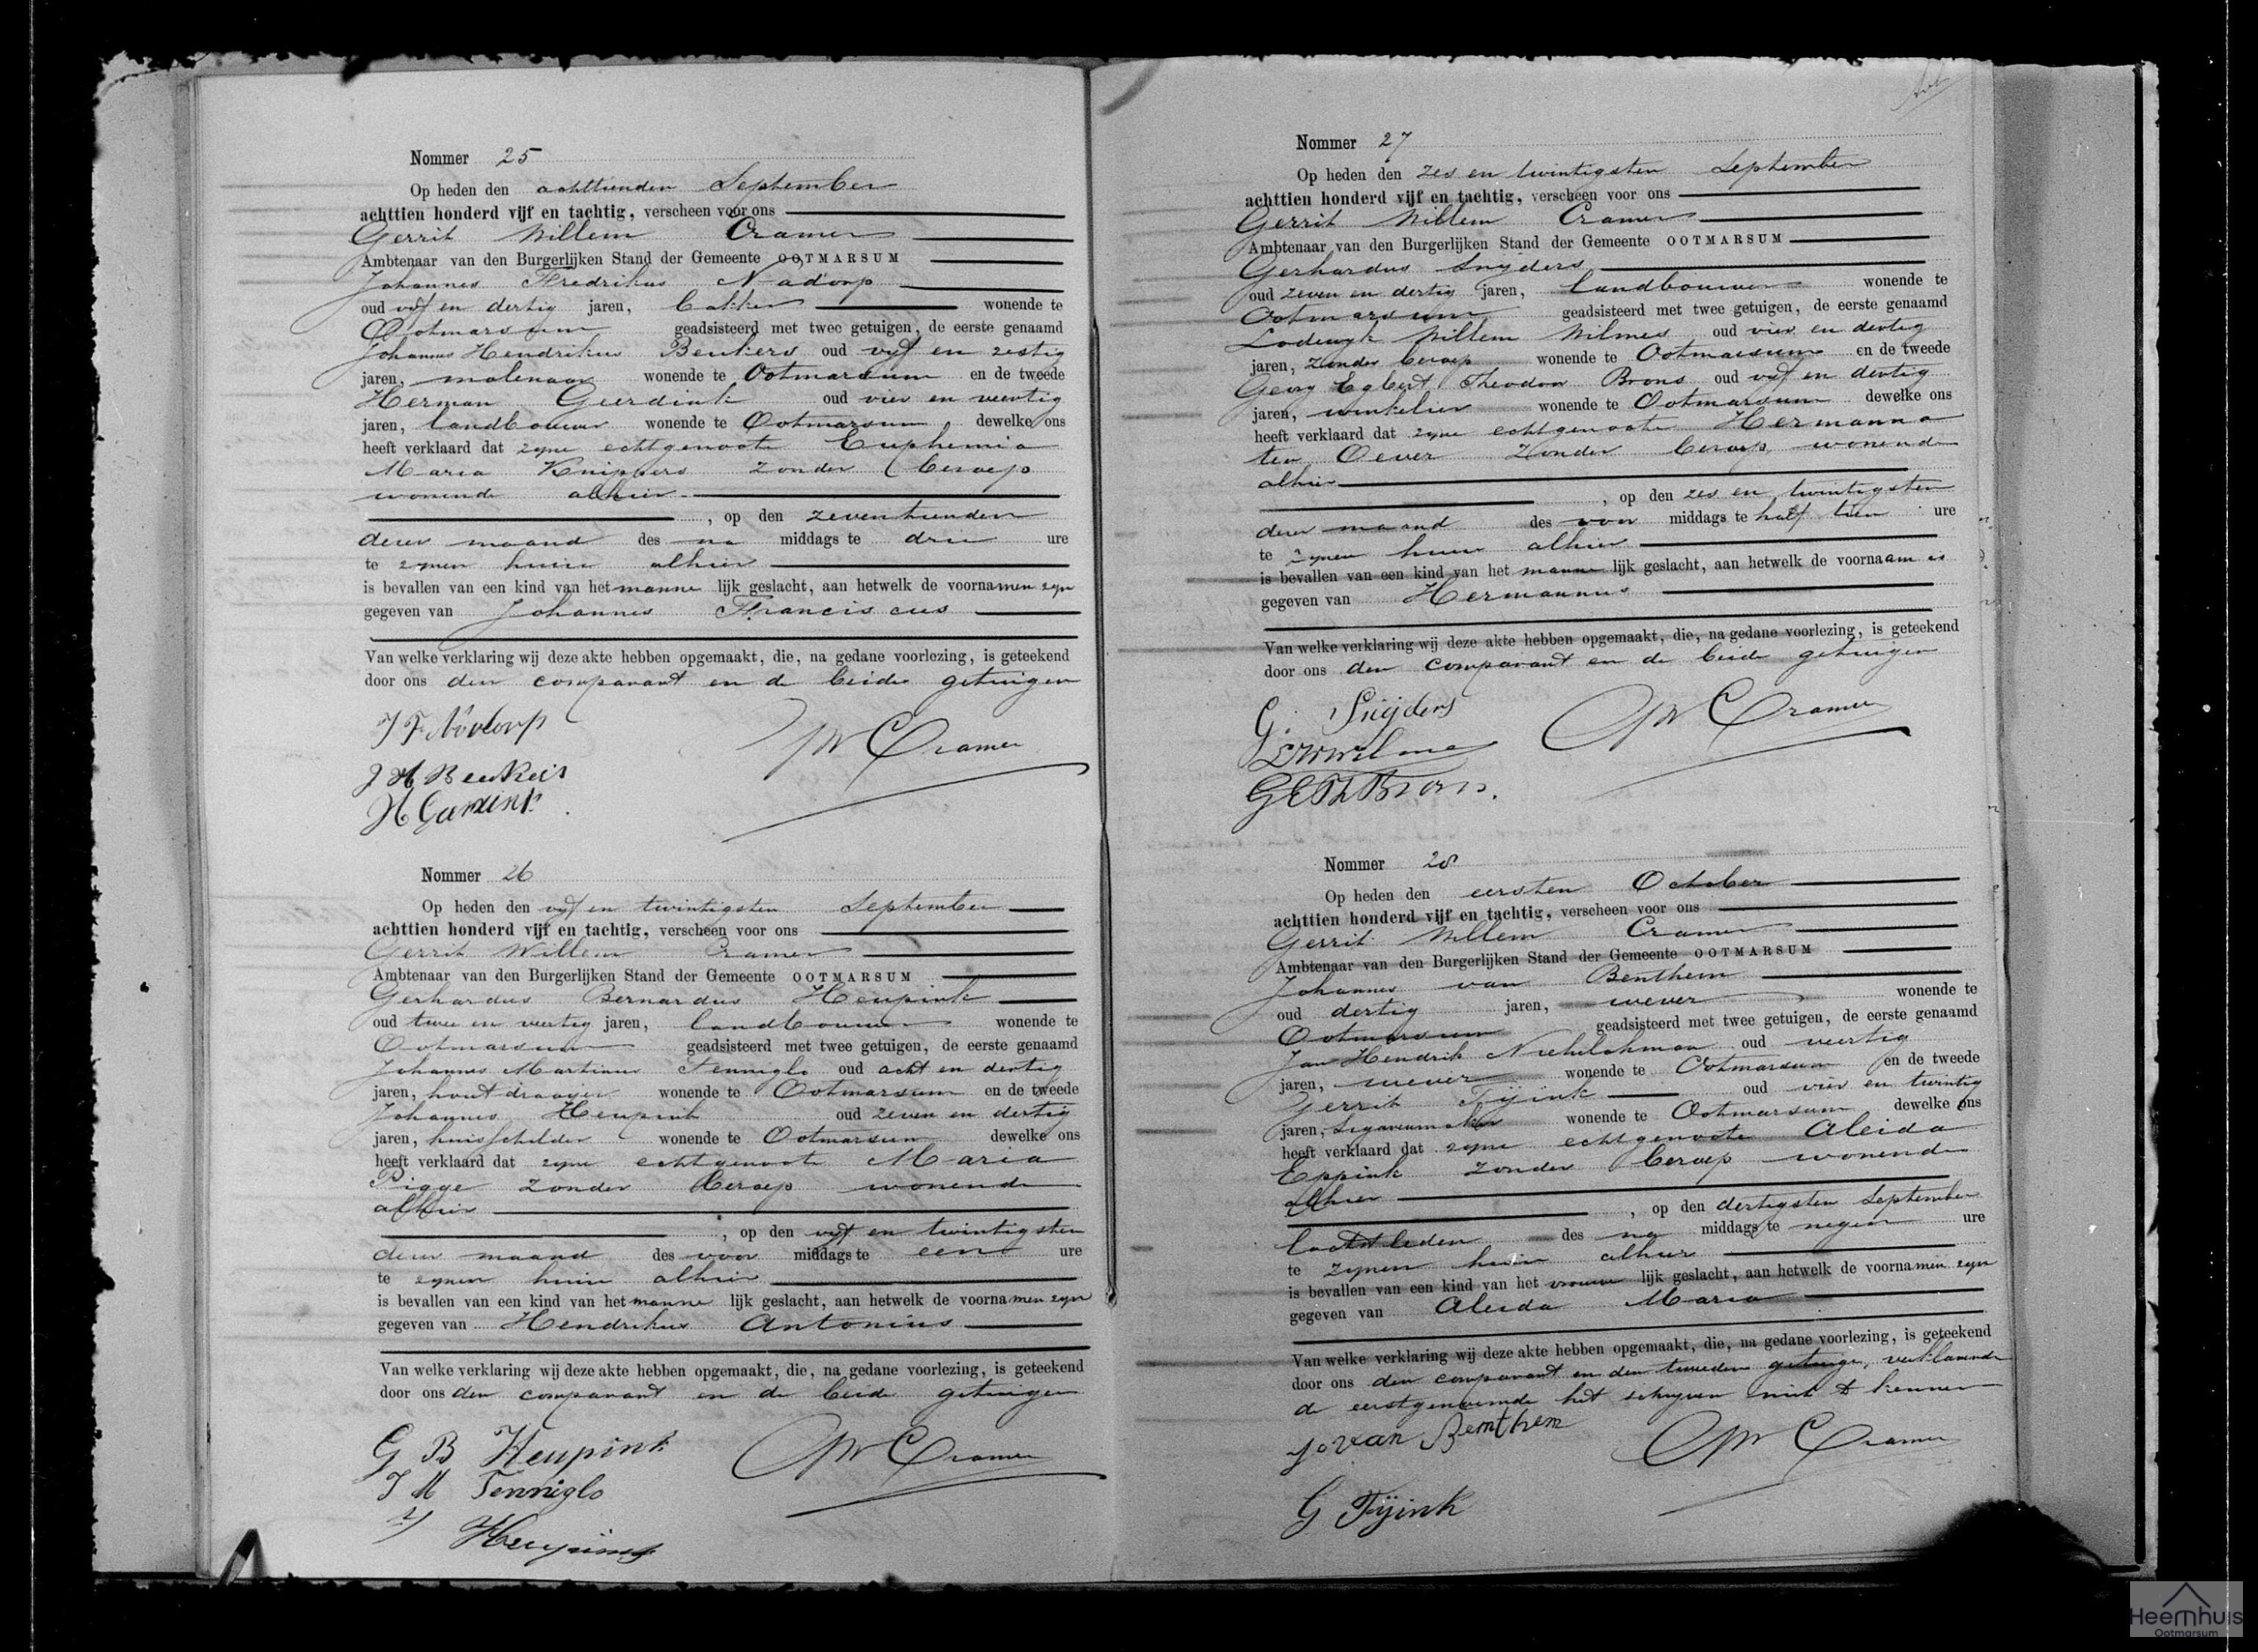 Nommer 25
Op heden den achttienden September
achttien honderd vijf en tachtig, verscheen voor ons
Gerrit Willem Cramer
Ambtenaar van den Burgerlijken Stand der Gemeente OOTMARSUM
Johannes Fredrikus Nadorp
oud vijf en dertig jaren, bakker wonende te
Ootmarsum geadsisteerd met twee getuigen, de eerste genaamd
Johannes Hendrikus Beukers oud vijf en zestig
jaren, molenaar wonende te Ootmarsum en de tweede
Herman Geerdink oud vier en veertig
jaren, landbouwer wonende te Ootmarsum dewelke ons
heeft verklaard dat zyne echtgenoote Euphemia
Maria Knippers zonder beroep
wonende alhier
, op den zeventienden
dezer maand des na middags te drie ure
te zynen huize alhier
is bevallen van een kind van het manne lijk geslacht, aan hetwelk de voornamen zyn
gegeven van Johannes Franciscus
Van welke verklaring wij deze akte hebben opgemaakt, die, na gedane voorlezing, is geteekend
door ons den comparant en de beide getuigen
J F Nadorp
GW Cramer
J H Beukers
H Geerdink
Nommer 26
Op heden den vijf en twintigsten September
achttien honderd vijf en tachtig, verscheen voor ons
Gerrit Willem Cramer
Ambtenaar van den Burgerlijken Stand der Gemeente OOTMARSUM
Gerhardus Bernardus Heupink
oud twee en veertig jaren, landbouwer wonende te
Ootmarsum geadsisteerd met twee getuigen, de eerste genaamd
Johannes Martinus Tenniglo oud acht en dertig
jaren, houtdraaijer wonende te Ootmarsum en de tweede
Johannes Heupink oud zeven en dertig
jaren, huisschilder wonende te Ootmarsum dewelke ons
heeft verklaard dat zyne echtgenoote Maria
Pigge zonder beroep wonende
alhier
, op den vijf en twintigsten
dezer maand des voor middags te een ure
te zynen huize alhier
is bevallen van een kind van het manne lijk geslacht, aan hetwelk de voornamen zyn
gegeven van Hendrikus Antonius
Van welke verklaring wij deze akte hebben opgemaakt, die, na gedane voorlezing, is geteekend
door ons den comparant en de beide getuigen
G B Heupink
GW Cramer
J M Tenniglo
J Heupink
Nommer 27
Op heden den zes en twintigsten September
achttien honderd vijf en tachtig, verscheen voor ons
Gerrit Willem Cramer
Ambtenaar van den Burgerlijken Stand der Gemeente OOTMARSUM
Gerhardus Snyders
oud zeven en dertig jaren, landbouwer wonende te
Ootmarsum geadsisteerd met twee getuigen, de eerste genaamd
Lodewyk Willem Wilmes oud vier en dertig
jaren, zonder beroep wonende te Ootmarsum en de tweede
Georg Egbert Theodoor Brons oud vijf en dertig
jaren, winkelier wonende te Ootmarsum dewelke ons
heeft verklaard dat zyne echtgenoote Hermanna
ter Oever zonder beroep, wonende
alhier
, op den zes en twintigsten
dezer maand des voor middags te half tien ure
te zynen huize alhier
is bevallen van een kind van het manne lijk geslacht, aan hetwelk de voornaam is
gegeven van Hermannus
Van welke verklaring wij deze akte hebben opgemaakt, die, na gedane voorlezing, is geteekend
door ons den comparant en de beide getuigen
G. Snijders
GW Cramer
GEThBrons.
Nommer 28
Op heden den eersten October
achttien honderd vijf en tachtig, verscheen voor ons
Gerrit Willem Cramer
Ambtenaar van den Burgerlijken Stand der Gemeente OOTMARSUM
Johannes van Benthem
oud dertig jaren, wever wonende te
Ootmarsum geadsisteerd met twee getuigen, de eerste genaamd
Jan Hendrik oud veertig
jaren, wever wonende te Ootmarsum en de tweede
Gerrit Tijink oud vier en twintig
jaren, Sigarenmaker wonende te Ootmarsum dewelke ons
heeft verklaard dat zyne echtgenoote Aleida
Eppink zonder beroep wonende
alhier
, op den dertigsten September
laatstleden des na middags te negen ure
te zynen huize alhier
is bevallen van een kind van het vrouwe lijk geslacht, aan hetwelk de voornamen zyn
gegeven van Aleida Maria
Van welke verklaring wij deze akte hebben opgemaakt, die, na gedane voorlezing, is geteekend
door ons den comparant en den tweeden getuige, verklarende
de eerstgenoemde het schryven niet te kennen
J van Benthem
GW Cramer
G Tijink
Heemhuis
Ootmarsum